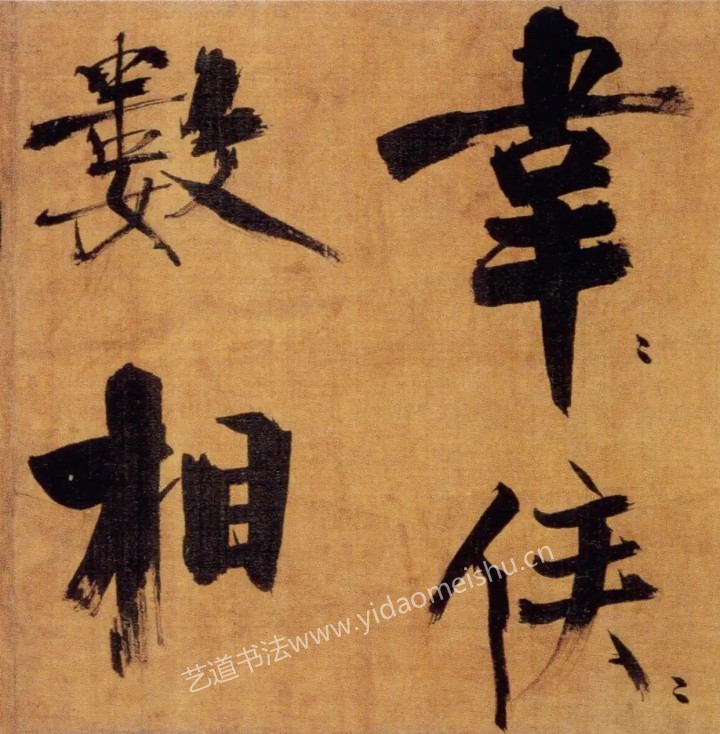 韋〻侯〻
數相
艺道书法www.yidaomeishu.cn